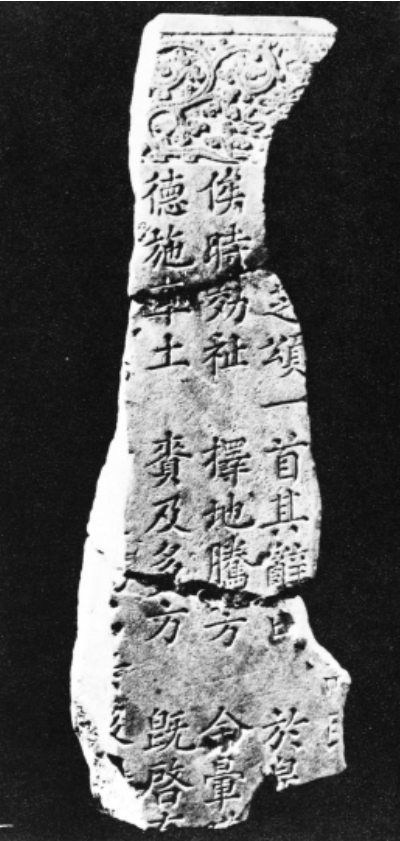 之頌一首其辭曰 於皇
俟時効祉 擇地騰方 令暈
德施率土 賚及多方 既啓